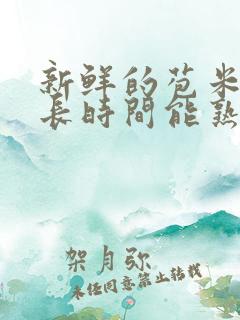 新鮮的苞米
長時間能熟
架月弥
未经同意禁止转载